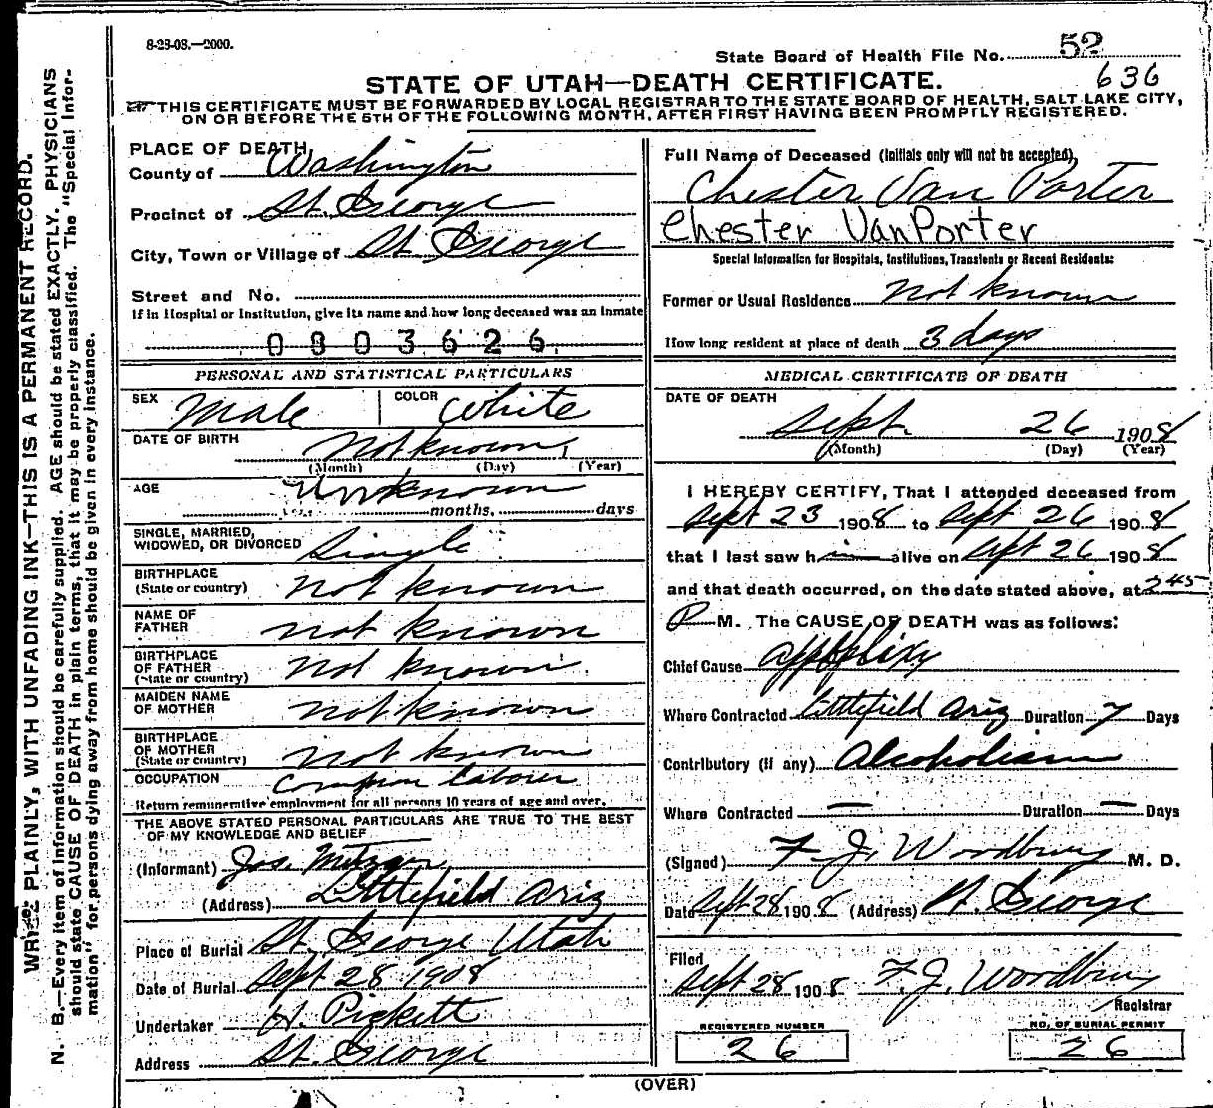 8-23-08.—2000.
State Board of Health File No. 52
STATE OF UTAH—DEATH CERTIFICATE. 636
THIS CERTIFICATE MUST BE FORWARDED BY LOCAL REGISTRAR TO THE STATE BOARD OF HEALTH, SALT LAKE CITY,
ON OR BEFORE THE 5TH OF THE FOLLOWING MONTH, AFTER FIRST HAVING BEEN PROMPTLY REGISTERED.
WRITE PLAINLY, WITH UNFADING INK—THIS IS A PERMANENT RECORD.
N. B.—Every item of information should be carefully supplied. AGE should be stated EXACTLY. PHYSICIANS
should state CAUSE OF DEATH in plain terms, that it may be properly classified. The "Special Infor-
mation" for persons dying away from home should be given in every instance.
PLACE OF DEATH,
County of Washington
Precinct of St. George
City, Town or Village of St George
Street and No.
If in Hospital or Institution, give its name and how long deceased was an inmate
0803626
PERSONAL AND STATISTICAL PARTICULARS
SEX Male COLOR White
DATE OF BIRTH Not known,
(Month) (Day) (Year)
AGE Unknown
months, days
SINGLE, MARRIED,
WIDOWED, OR DIVORCED Single
BIRTHPLACE
(State or country) not known
NAME OF
FATHER not known
BIRTHPLACE
OF FATHER
(State or country) not known
MAIDEN NAME
OF MOTHER not known
BIRTHPLACE
OF MOTHER
(State or country) not known
OCCUPATION Common Laborer
Return remunerative employment for all persons 10 years of age and over.
THE ABOVE STATED PERSONAL PARTICULARS ARE TRUE TO THE BEST
OF MY KNOWLEDGE AND BELIEF
(Informant) Jos.
(Address) Littlefield Ariz
Place of Burial St. George Utah
Date of Burial Sept 28 1908
Undertaker H. Pickett
Address St. George
Full Name of Deceased (Initials only will not be accepted)
Chester Van Porter
Chester VanPorter
Special Information for Hospitals, Institutions, Transients or Recent Residents:
Former or Usual Residence not known
How long resident at place of death 3 days
MEDICAL CERTIFICATE OF DEATH
DATE OF DEATH
Sept. 26 1908
(Month) (Day) (Year)
I HEREBY CERTIFY, That I attended deceased from
Sept 23 1908 to Sept 26 1908
that I last saw h im alive on Sept 26 1908
and that death occurred, on the date stated above, at 245
P M. The CAUSE OF DEATH was as follows:
Chief Cause
Where Contracted Littlefield Ariz Duration 7 Days
Contributory (if any) Alcoholism
Where Contracted — Duration — Days
(Signed) F. J. Woodbury M. D.
Date Sept 28 1908 (Address) St. George
Filed
Sept 28 1908 F. J. Woodbury
Registrar
REGISTERED NUMBER
26
NO. OF BURIAL PERMIT
26
(OVER)